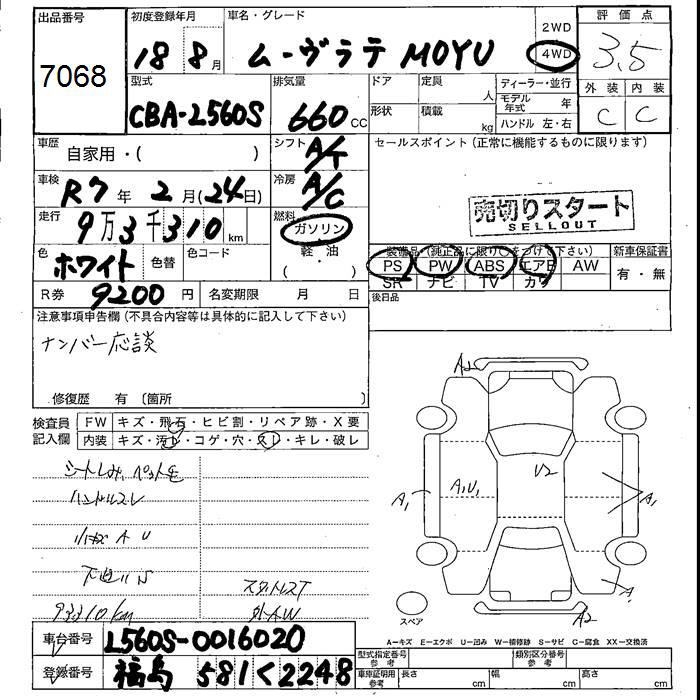 出品番号
7068
初度登録年月
18 8月
車名・グレード
ムーヴラテ MOYU
2WD
4WD
評価点
3.5
型式
CBA-L560S
排気量
660 CC
ドア
定員
人
形状
積載
kg
ディーラー・並行
モデル年式 年
ハンドル 左・右
外装
内装
C
C
車歴
自家用・( )
シフト
A/T
セールスポイント(正常に機能するものに限ります)
車検
R7年 2月(24日)
冷房
A/C
売切りスタート
SELLOUT
走行
9万3千310 km
燃料
ガソリン
軽・油
( )
色
ホワイト
色替
色コード
装備品・(純正品に限り○をつけて下さい)
PS PW ABS エアB AW
SR ナビ TV カワ
新車保証書
有・無
R券 9200円
名変期限 月 日
後日品
注意事項申告欄(不具合内容等は具体的に記入して下さい)
ナンバー応談
修復歴 有 〔箇所
検査員記入欄
FW キズ・飛石・ヒビ割・リペア跡・X要
内装 キズ・汚レ・コゲ・穴・スレ・キレ・破レ
ハンドルスレ
A U
93310km
スタットレスT
外AW
A2
U2
A1
A1U1
A1
A2
スペア
A-キズ E-エクボ U-凹み W-補修跡 S-サビ C-腐食 XX-交換済
車台番号
L560S-0016020
登録番号
福島 581く2248
型式指定番号
参考
類別区分番号
参考
車庫証明用
参考
長さ cm
幅 cm
高さ cm